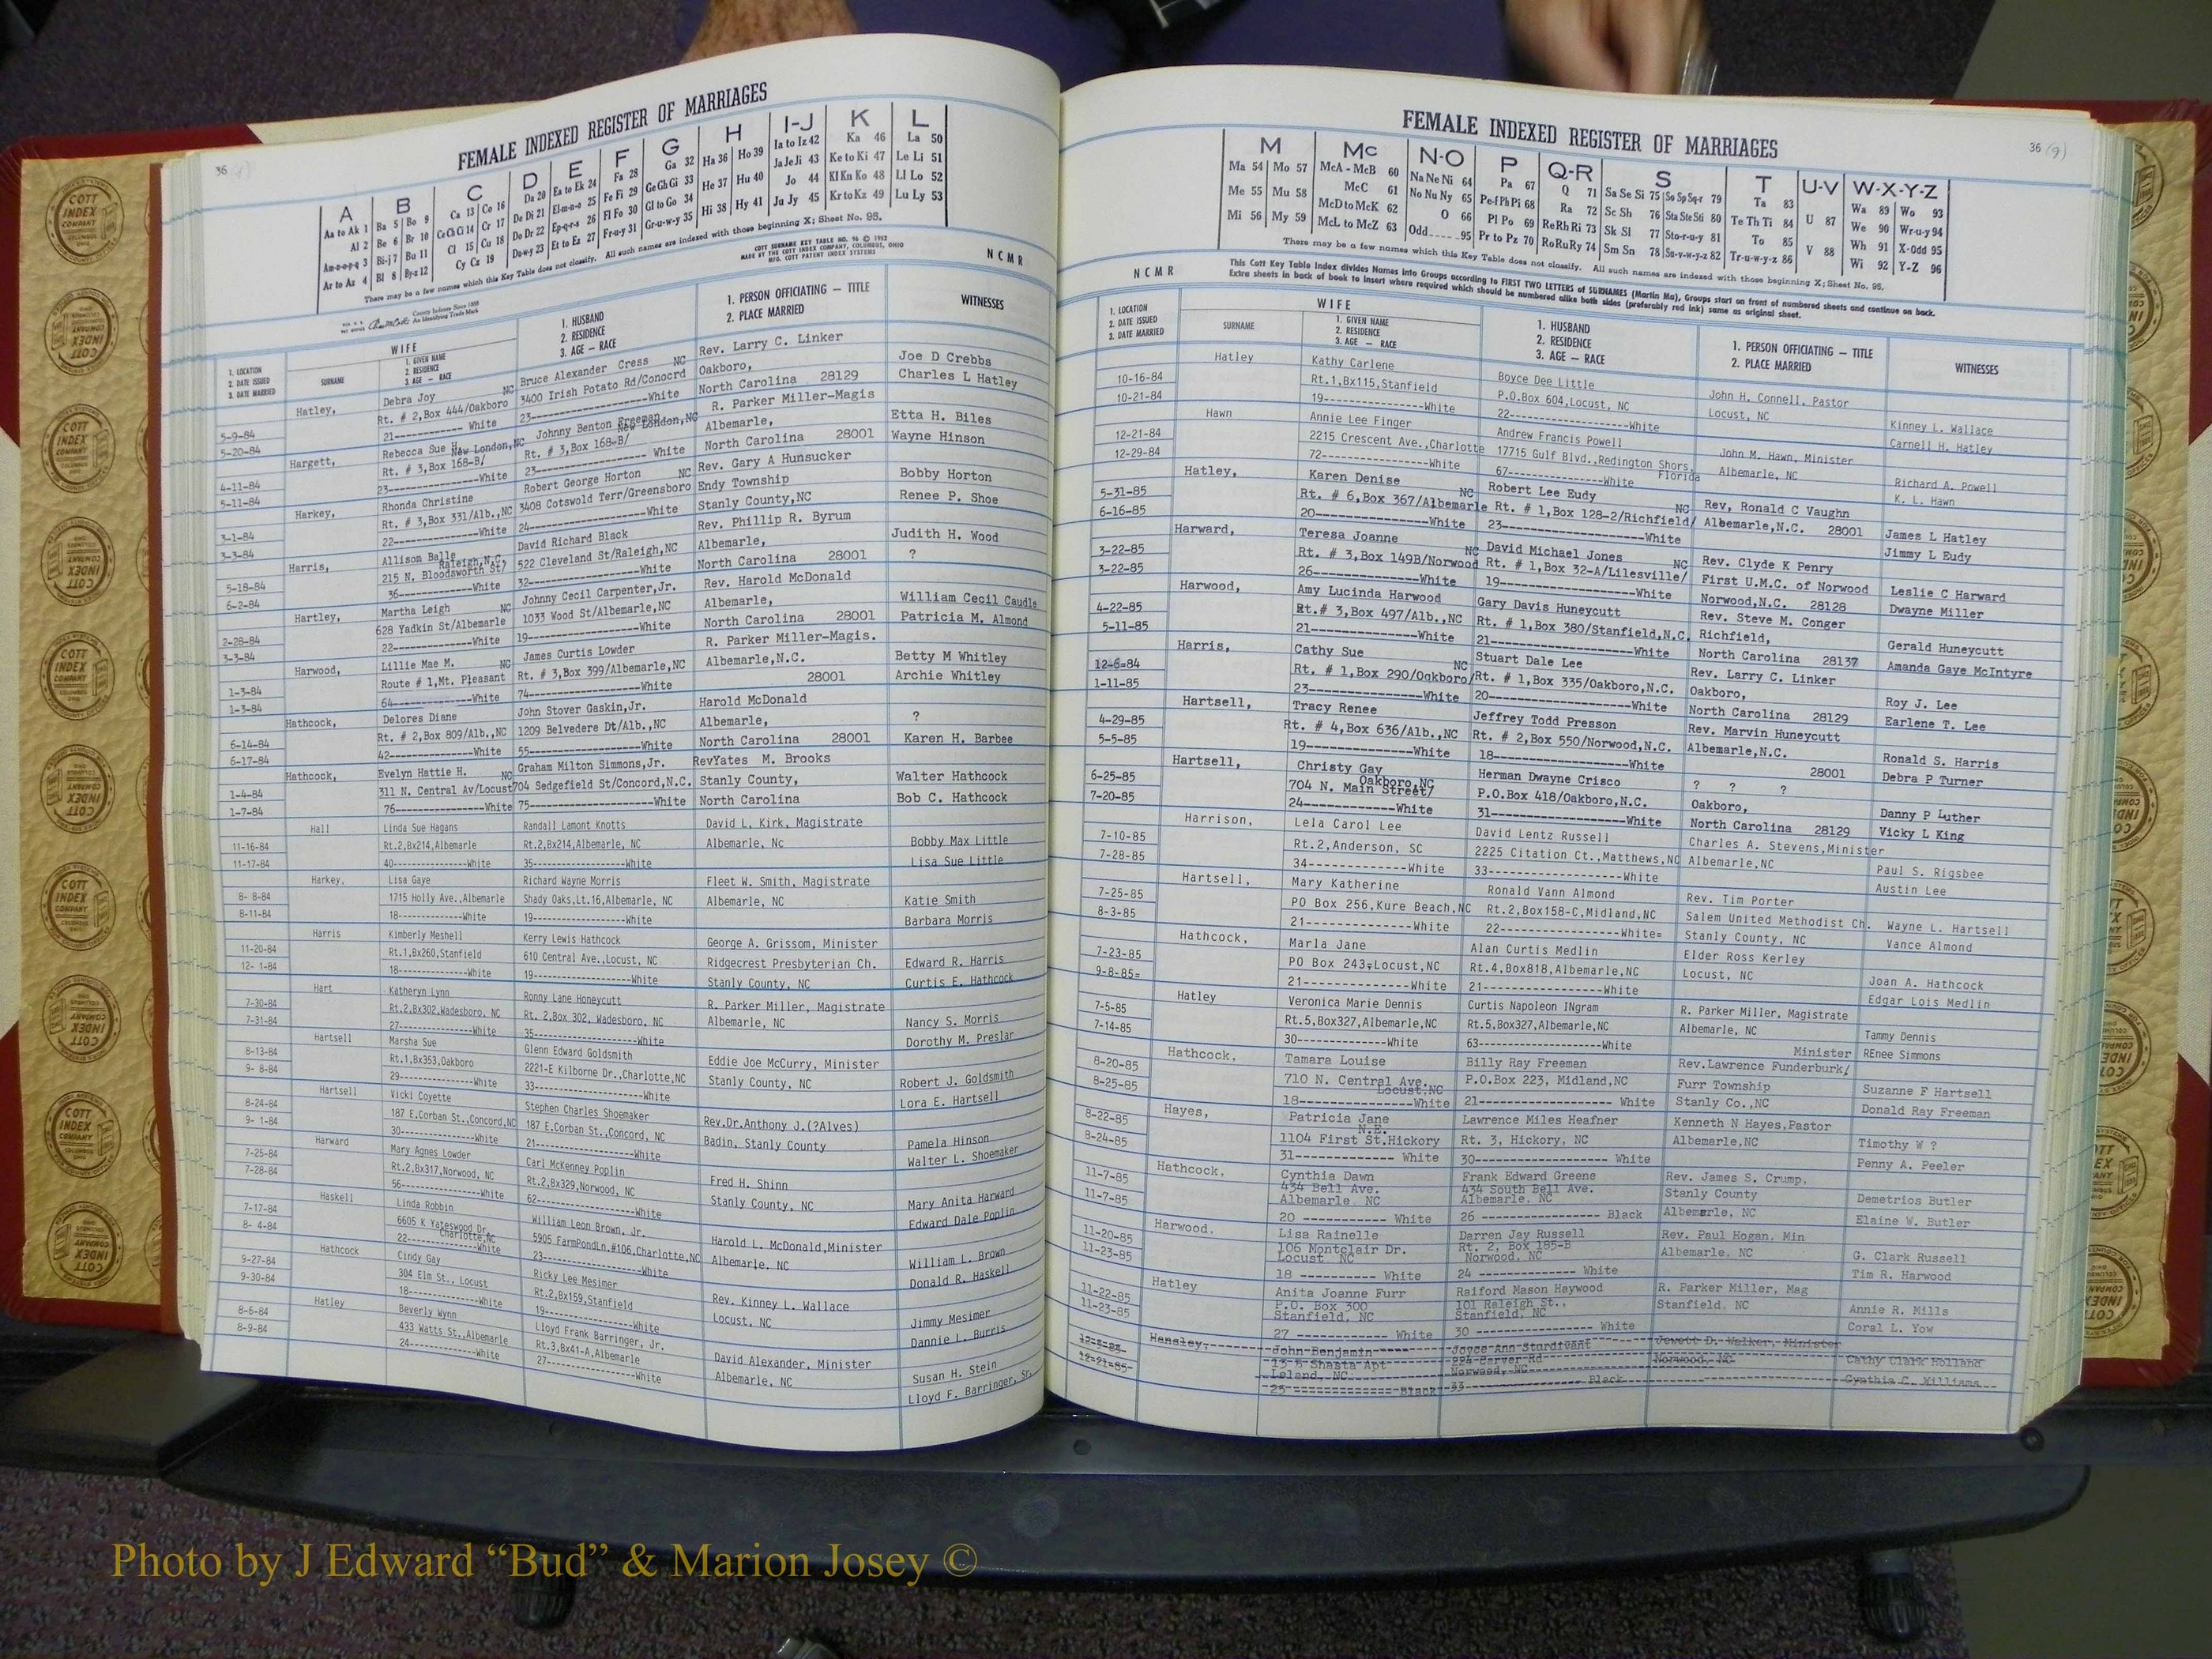 36
FEMALE INDEXED REGISTER OF MARRIAGES
A B C D E F G H I-J K L
Aa to Ak 1 Ba 5 Bo 9 Ca 13 Co 16 Da 20 Ea to Ek 24 Fa 28 Ga 32 Ha 36 Ho 39 Ia to Iz 42 Ka 46 La 50
Al 2 Be 6 Br 10 Ce Ch Ci 14 Cr 17 De Di 21 El-m-n-o 25 Fe Fi 29 Ge Gh Gi 33 He 37 Hu 40 Ja Je Ji 43 Ke to Ki 47 Le Li 51
Am-n-o-p-q 3 Bi-j 7 Bu 11 Cl 15 Cu 18 Do Dr 22 Ep-q-r-s 26 Fl Fo 30 Gl to Go 34 Hi 38 Hy 41 Jo 44 Kl Kn Ko 48 Ll Lo 52
Ar to Az 4 Bl 8 By-z 12 Cy Cz 19 Du-w-y 23 Et to Ez 27 Fr-u-y 31 Gr-u-w-y 35 Ju Jy 45 Kr to Kz 49 Lu Ly 53
There may be a few names which this Key Table does not classify. All such names are indexed with those beginning X; Sheet No. 95.
COTT SURNAME KEY TABLE NO. 96 © 1952
MADE BY THE COTT INDEX COMPANY, COLUMBUS, OHIO
MFG. COTT PATENT INDEX SYSTEMS
NCMR
County Indexes Since 1888
An Identifying Trade Mark
1. LOCATION
2. DATE ISSUED
3. DATE MARRIED
WIFE
SURNAME
1. GIVEN NAME
2. RESIDENCE
3. AGE — RACE
1. HUSBAND
2. RESIDENCE
3. AGE — RACE
1. PERSON OFFICIATING — TITLE
2. PLACE MARRIED
WITNESSES
Hatley, Debra Joy NC Bruce Alexander Cress NC Rev. Larry C. Linker
Rt. # 2,Box 444/Oakboro 3400 Irish Potato Rd/Conocrd Oakboro, Joe D Crebbs
5-9-84 21------------ White 23--------------------White North Carolina 28129 Charles L Hatley
5-20-84
Hargett, Rebecca Sue H. New London,NC Johnny Benton Freeman New London,NC R. Parker Miller-Magis
Rt. # 3,Box 168-B/ Rt. # 3,Box 168-B/ Albemarle, Etta H. Biles
4-11-84 23---------------White 23-------------------- White North Carolina 28001 Wayne Hinson
5-11-84
Harkey, Rhonda Christine Robert George Horton NC Rev. Gary A Hunsucker
Rt. # 3,Box 331/Alb.,NC 3408 Cotswold Terr/Greensboro Endy Township Bobby Horton
3-1-84 22--------------White 24--------------------White Stanly County,NC Renee P. Shoe
3-3-84
Harris, Allison Balle Raleigh,N.C. David Richard Black Rev. Phillip R. Byrum
215 N. Bloodsworth St/ 522 Cleveland St/Raleigh,NC Albemarle, Judith H. Wood
5-18-84 36--------------White 32--------------------White North Carolina 28001 ?
6-2-84
Hartley, Martha Leigh NC Johnny Cecil Carpenter,Jr. Rev. Harold McDonald
628 Yadkin St/Albemarle 1033 Wood St/Albemarle,NC Albemarle, William Cecil Caudle
2-28-84 22--------------White 19--------------------White North Carolina 28001 Patricia M. Almond
3-3-84
Harwood, Lillie Mae M. NC James Curtis Lowder R. Parker Miller-Magis.
Route # 1,Mt. Pleasant Rt. # 3,Box 399/Albemarle,NC Albemarle,N.C. Betty M Whitley
1-3-84 64--------------White 74--------------------White 28001 Archie Whitley
1-3-84
Hathcock, Delores Diane John Stover Gaskin,Jr. Harold McDonald
Rt. # 2,Box 809/Alb.,NC 1209 Belvedere Dt/Alb.,NC Albemarle, ?
6-14-84 42--------------White 55--------------------White North Carolina 28001 Karen H. Barbee
6-17-84
Hathcock, Evelyn Hattie H. NC Graham Milton Simmons,Jr. RevYates M. Brooks
1-4-84 311 N. Central Av/Locust 704 Sedgefield St/Concord,N.C. Stanly County, Walter Hathcock
1-7-84 76---------------White 75--------------------White North Carolina Bob C. Hathcock
Hall Linda Sue Hagans Randall Lamont Knotts David L. Kirk, Magistrate
11-16-84 Rt.2,Bx214,Albemarle Rt.2,Bx214,Albemarle, NC Albemarle, Nc Bobby Max Little
11-17-84 40--------------White 35----------------------White Lisa Sue Little
Harkey, Lisa Gaye Richard Wayne Morris Fleet W. Smith, Magistrate
8- 8-84 1715 Holly Ave.,Albemarle Shady Oaks,Lt.16,Albemarle, NC Albemarle, NC Katie Smith
8-11-84 18------------White 19----------------------White Barbara Morris
Harris Kimberly Meshell Kerry Lewis Hathcock George A. Grissom, Minister
11-20-84 Rt.1,Bx260,Stanfield 610 Central Ave.,Locust, NC Ridgecrest Presbyterian Ch. Edward R. Harris
12- 1-84 18------------White 19----------------------White Stanly County, NC Curtis E. Hathcock
Hart Katheryn Lynn Ronny Lane Honeycutt R. Parker Miller, Magistrate
7-30-84 Rt.2,Bx302,Wadesboro, NC Rt. 2,Box 302, Wadesboro, NC Albemarle, NC Nancy S. Morris
7-31-84 27--------------White 35----------------------White Dorothy M. Preslar
Hartsell Marsha Sue Glenn Edward Goldsmith Eddie Joe McCurry, Minister
8-13-84 Rt.1,Bx353,Oakboro 2221-E Kilborne Dr.,Charlotte,NC Stanly County, NC Robert J. Goldsmith
9- 8-84 29--------------White 33----------------------White Lora E. Hartsell
Hartsell Vicki Coyette Stephen Charles Shoemaker Rev.Dr.Anthony J.(?Alves)
8-24-84 187 E.Corban St.,Concord,NC 187 E.Corban St.,Concord, NC Badin, Stanly County Pamela Hinson
9- 1-84 30--------------White 21----------------------White Walter L. Shoemaker
Harward Mary Agnes Lowder Carl McKenney Poplin Fred H. Shinn
7-25-84 Rt.2,Bx317,Norwood, NC Rt.2,Bx329,Norwood, NC Stanly County, NC Mary Anita Harward
7-28-84 56----------------White 62----------------------White Edward Dale Poplin
Haskell Linda Robbin William Leon Brown, Jr. Harold L. McDonald,Minister
7-17-84 6605 K Yateswood Dr. Charlotte,NC 5905 FarmPondLn.#106,Charlotte,NC Albemarle, NC William L. Brown
8- 4-84 22--------------White 23----------------------White Donald R. Haskell
Hathcock Cindy Gay Ricky Lee Mesimer Rev. Kinney L. Wallace
9-27-84 304 Elm St., Locust Rt.2,Bx159,Stanfield Locust, NC Jimmy Mesimer
9-30-84 18--------------White 19----------------------White Dannie L. Burris
Hatley Beverly Wynn Lloyd Frank Barringer, Jr. David Alexander, Minister
8-6-84 433 Watts St.,Albemarle Rt.3,Bx41-A,Albemarle Albemarle, NC Susan H. Stein
8-9-84 24--------------White 27----------------------White Lloyd F. Barringer, Sr.
36 (9)
FEMALE INDEXED REGISTER OF MARRIAGES
M Mc N-O P Q-R S T U-V W-X-Y-Z
Ma 54 Mo 57 McA - McB 60 Na Ne Ni 64 Pa 67 Q 71 Sa Se Si 75 So Sp Sq-r 79 Ta 83 Wa 89 Wo 93
Me 55 Mu 58 McC 61 No Nu Ny 65 Pe-f Ph Pi 68 Ra 72 Sc Sh 76 Sta Ste Sti 80 Te Th Ti 84 U 87 We 90 Wr-u-y 94
Mi 56 My 59 McD to McK 62 O 66 Pl Po 69 Re Rh Ri 73 Sk Sl 77 Sto-r-u-y 81 To 85 Wh 91 X-Odd 95
McL to McZ 63 Odd 95 Pr to Pz 70 Ro Ru Ry 74 Sm Sn 78 Su-v-w-y-z 82 Tr-u-w-y-z 86 V 88 Wi 92 Y-Z 96
There may be a few names which this Key Table does not classify. All such names are indexed with those beginning X; Sheet No. 95.
NCMR
This Cott Key Table Index divides Names into Groups according to FIRST TWO LETTERS of SURNAMES (Martin Ma), Groups start on front of numbered sheets and continue on back.
Extra sheets in back of book to insert where required which should be numbered alike both sides (preferably red ink) same as original sheet.
1. LOCATION
2. DATE ISSUED
3. DATE MARRIED
WIFE
SURNAME
1. GIVEN NAME
2. RESIDENCE
3. AGE — RACE
1. HUSBAND
2. RESIDENCE
3. AGE — RACE
1. PERSON OFFICIATING — TITLE
2. PLACE MARRIED
WITNESSES
Hatley Kathy Carlene Boyce Dee Little John H. Connell, Pastor
10-16-84 Rt.1,Bx115,Stanfield P.O.Box 604,Locust, NC Locust, NC Kinney L. Wallace
10-21-84 19----------------White 22----------------White Carnell H. Hatley
Hawn Annie Lee Finger Andrew Francis Powell John M. Hawn, Minister
12-21-84 2215 Crescent Ave.,Charlotte 17715 Gulf Blvd.,Redington Shors, Florida Albemarle, NC Richard A. Powell
12-29-84 72----------------White 67--------------White K. L. Hawn
Hatley, Karen Denise NC Robert Lee Eudy NC Rev, Ronald C Vaughn
5-31-85 Rt. # 6,Box 367/Albemarle Rt. # 1,Box 128-2/Richfield/ Albemarle,N.C. 28001 James L Hatley
6-16-85 20----------------White 23-----------------White Jimmy L Eudy
Harward, Teresa Joanne NC David Michael Jones NC Rev. Clyde K Penry
3-22-85 Rt. # 3,Box 149B/Norwood Rt. # 1,Box 32-A/Lilesville/ First U.M.C. of Norwood Leslie C Harward
3-22-85 26----------------White 19----------------White Norwood,N.C. 28128 Dwayne Miller
Harwood, Amy Lucinda Harwood Gary Davis Huneycutt Rev. Steve M. Conger
4-22-85 Rt.# 3,Box 497/Alb.,NC Rt. # 1,Box 380/Stanfield,N.C. Richfield, Gerald Huneycutt
5-11-85 21----------------White 21-------------------White North Carolina 28137 Amanda Gaye McIntyre
Harris, Cathy Sue NC Stuart Dale Lee Rev. Larry C. Linker
12-6-84 Rt. # 1,Box 290/Oakboro/ Rt. # 1,Box 335/Oakboro,N.C. Oakboro, Roy J. Lee
1-11-85 23----------------White 20-------------------White North Carolina 28129 Earlene T. Lee
Hartsell, Tracy Renee Jeffrey Todd Presson Rev. Marvin Huneycutt
4-29-85 Rt. # 4,Box 636/Alb.,NC Rt. # 2,Box 550/Norwood,N.C. Albemarle,N.C. Ronald S. Harris
5-5-85 19----------------White 18-------------------White 28001 Debra P Turner
Hartsell, Christy Gay Oakboro,NC Herman Dwayne Crisco ? ? ?
6-25-85 704 N. Main Street/ P.O.Box 418/Oakboro,N.C. Oakboro, Danny P Luther
7-20-85 24--------------White 31-------------------White North Carolina 28129 Vicky L King
Harrison, Lela Carol Lee David Lentz Russell Charles A. Stevens,Minister
7-10-85 Rt.2,Anderson, SC 2225 Citation Ct.,Matthews,NC Albemarle,NC Paul S. Rigsbee
7-28-85 34----------------White 33------------------White Austin Lee
Hartsell, Mary Katherine Ronald Vann Almond Rev. Tim Porter
7-25-85 PO Box 256,Kure Beach,NC Rt.2,Box158-C,Midland,NC Salem United Methodist Ch. Wayne L. Hartsell
8-3-85 21----------------White 22------------------White= Stanly County, NC Vance Almond
Hathcock, Marla Jane Alan Curtis Medlin Elder Ross Kerley
7-23-85 PO Box 243,Locust,NC Rt.4,Box818,Albemarle,NC Locust, NC Joan A. Hathcock
9-8-85= 21----------------White 21------------------White Edgar Lois Medlin
Hatley Veronica Marie Dennis Curtis Napoleon INgram R. Parker Miller, Magistrate
7-5-85 Rt.5,Box327,Albemarle,NC Rt.5,Box327,Albemarle,NC Albemarle, NC Tammy Dennis
7-14-85 30--------------White 63------------------White REnee Simmons
Hathcock, Tamara Louise Billy Ray Freeman Rev.Lawrence Funderburk/ Minister
8-20-85 710 N. Central Ave. Locust,NC P.O.Box 223, Midland,NC Furr Township Suzanne F Hartsell
8-25-85 18----------------White 21------------------ White Stanly Co.,NC Donald Ray Freeman
Hayes, Patricia Jane Lawrence Miles Heafner Kenneth N Hayes,Pastor
8-22-85 1104 First St. N.E. Hickory Rt. 3, Hickory, NC Albemarle,NC Timothy W ?
8-24-85 31------------- White 30------------------ White Penny A. Peeler
Hathcock, Cynthia Dawn Frank Edward Greene Rev. James S. Crump,
11-7-85 434 Bell Ave. 434 South Bell Ave. Stanly County Demetrios Butler
11-7-85 Albemarle, NC Albemarle, NC Albemarle, NC Elaine W. Butler
20 ----------- White 26 ---------------- Black
Harwood. Lisa Rainelle Darren Jay Russell Rev. Paul Hogan, Min
11-20-85 106 Montclair Dr. Rt. 2, Box 185-B Albemarle, NC G. Clark Russell
11-23-85 Locust NC Norwood, NC Tim R. Harwood
18 ----------- White 24 ------------- White
Hatley Anita Joanne Furr Raiford Mason Haywood R. Parker Miller, Mag
11-22-85 P.O. Box 300 101 Raleigh St., Stanfield, NC Annie R. Mills
11-23-85 Stanfield, NC Stanfield, NC Coral L. Yow
27 ----------- White 30 --------------- White
Hensley, John Benjamin Joyce Ann Sturdivant Jewett D. Walker, Minister
12-5-85 13 5 Shasta Apt 224 Carver Rd Norwood, NC Cathy Clark Holland
12-21-85 Leland, NC Norwood, NC Cynthia C. Williams
25 ----------- Black 33 --------------- Black
COTT INDEX COMPANY
Photo by J Edward “Bud” & Marion Josey ©